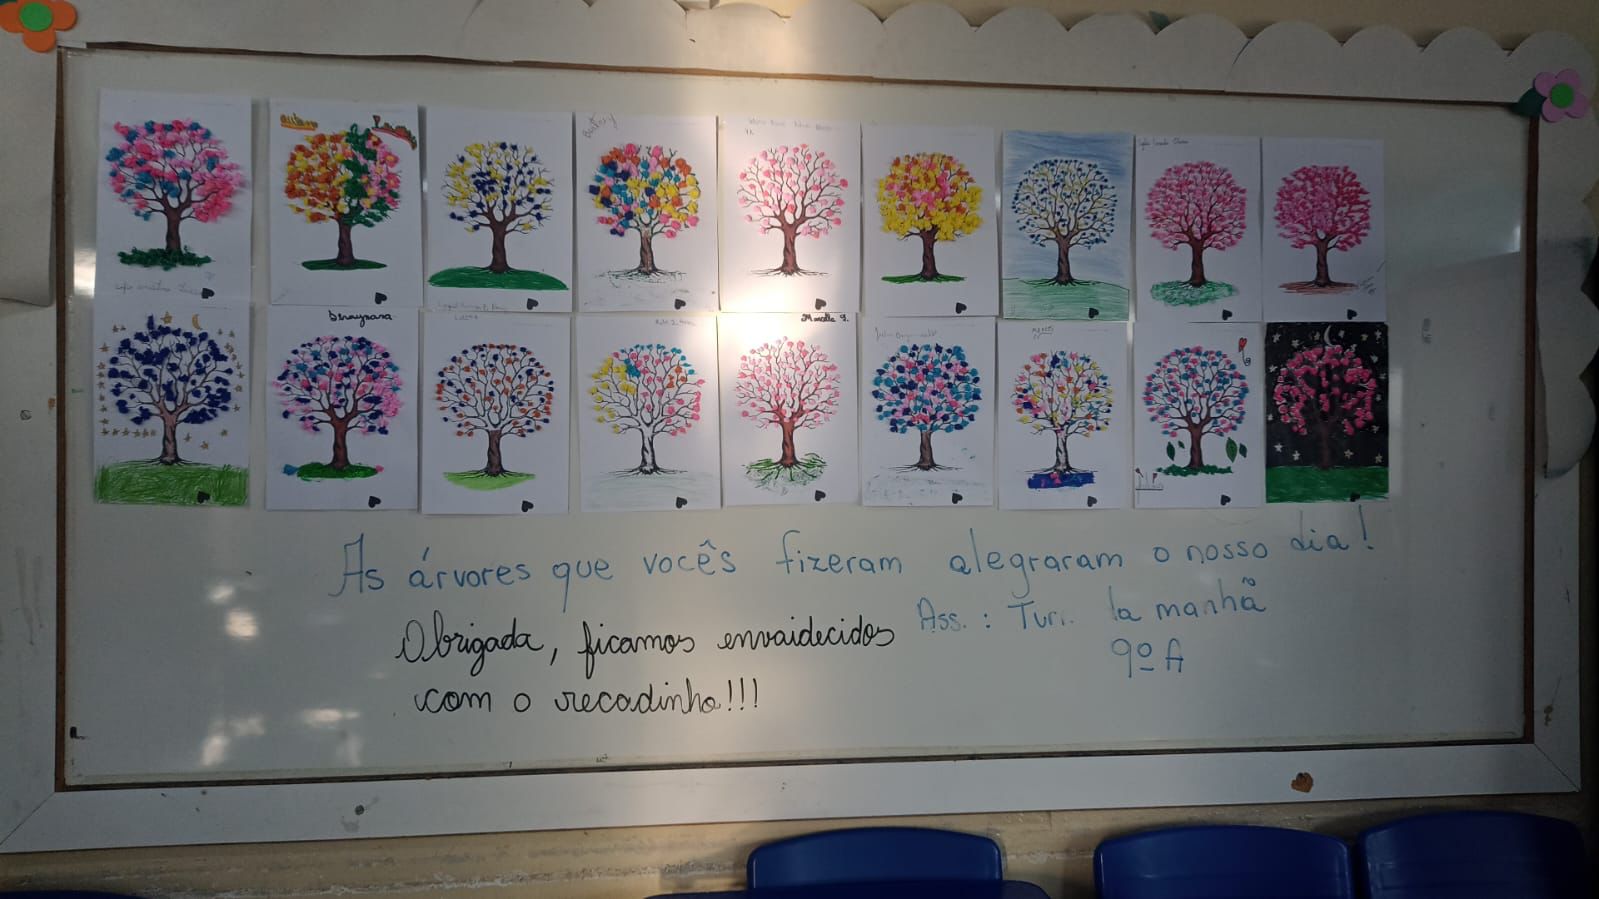 outono
Bethony
Sophia
Dhaynara
Marcella G.
As árvores que vocês fizeram alegraram o nosso dia!
Ass.: Tur. la manhã
9º A
Obrigada, ficamos envaidecidos
com o recadinho!!!